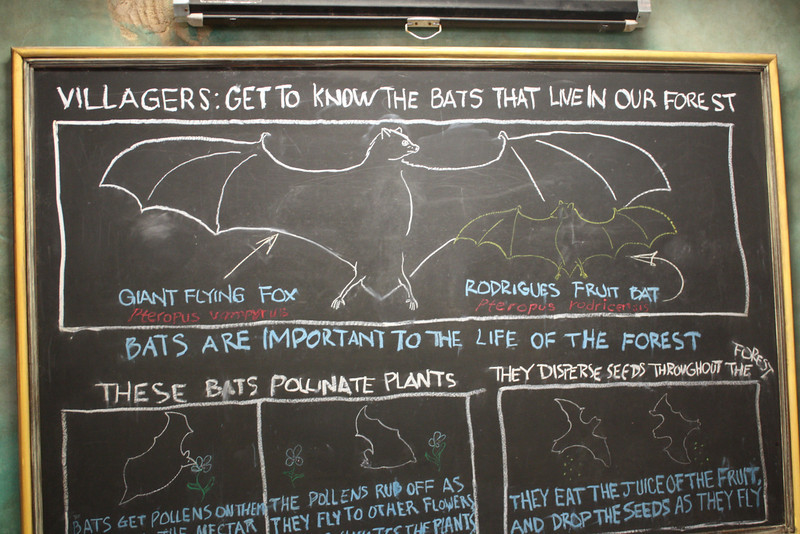 VILLAGERS: GET TO KNOW THE BATS THAT LIVE IN OUR FOREST
GIANT FLYING FOX
Pteropus vampyrus
RODRIGUES FRUIT BAT
Pteropus rodricensis
BATS ARE IMPORTANT TO THE LIFE OF THE FOREST
THESE BATS POLLINATE PLANTS
BATS GET POLLENS ON THEM
THE NECTAR
THE POLLENS RUB OFF AS
THEY FLY TO OTHER FLOWERS
THE PLANTS
THEY DISPERSE SEEDS THROUGHOUT THE FOREST
THEY EAT THE JUICE OF THE FRUIT,
AND DROP THE SEEDS AS THEY FLY